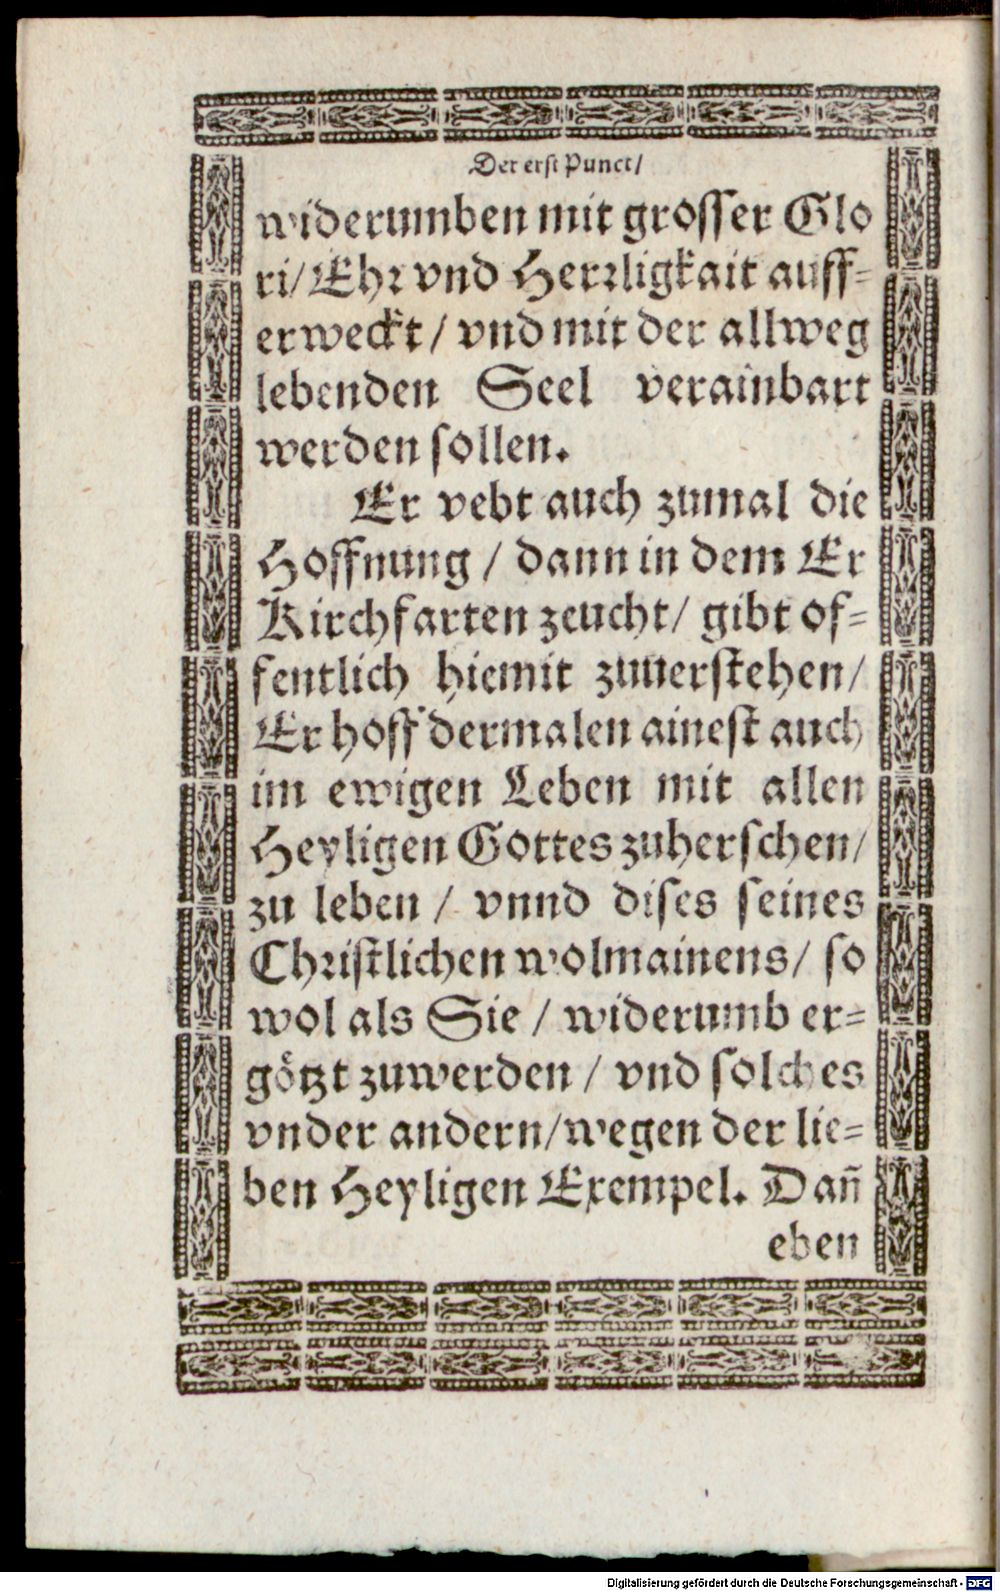 Der erst Punct/
widerumben mit grosser Glo
ri/ Ehr vnd Herrligkait auff-
erweckt / vnd mit der allweg
lebenden Seel verainbart
werden sollen.
Er vebt auch zumal die
Hoffnung / dann in dem Er
Kirchfarten zeucht / gibt of-
fentlich hiemit zuuerstehen /
Er hoff dermalen ainest auch
im ewigen Leben mit allen
Heyligen Gottes zuherschen /
zu leben / vnnd dises seines
Christlichen wolmainens / so
wol als Sie / widerumb er-
götzt zuwerden / vnd solches
vnder andern / wegen der lie-
ben Heyligen Exempel. Dañ
eben
Digitalisierung gefördert durch die Deutsche Forschungsgemeinschaft - DFG